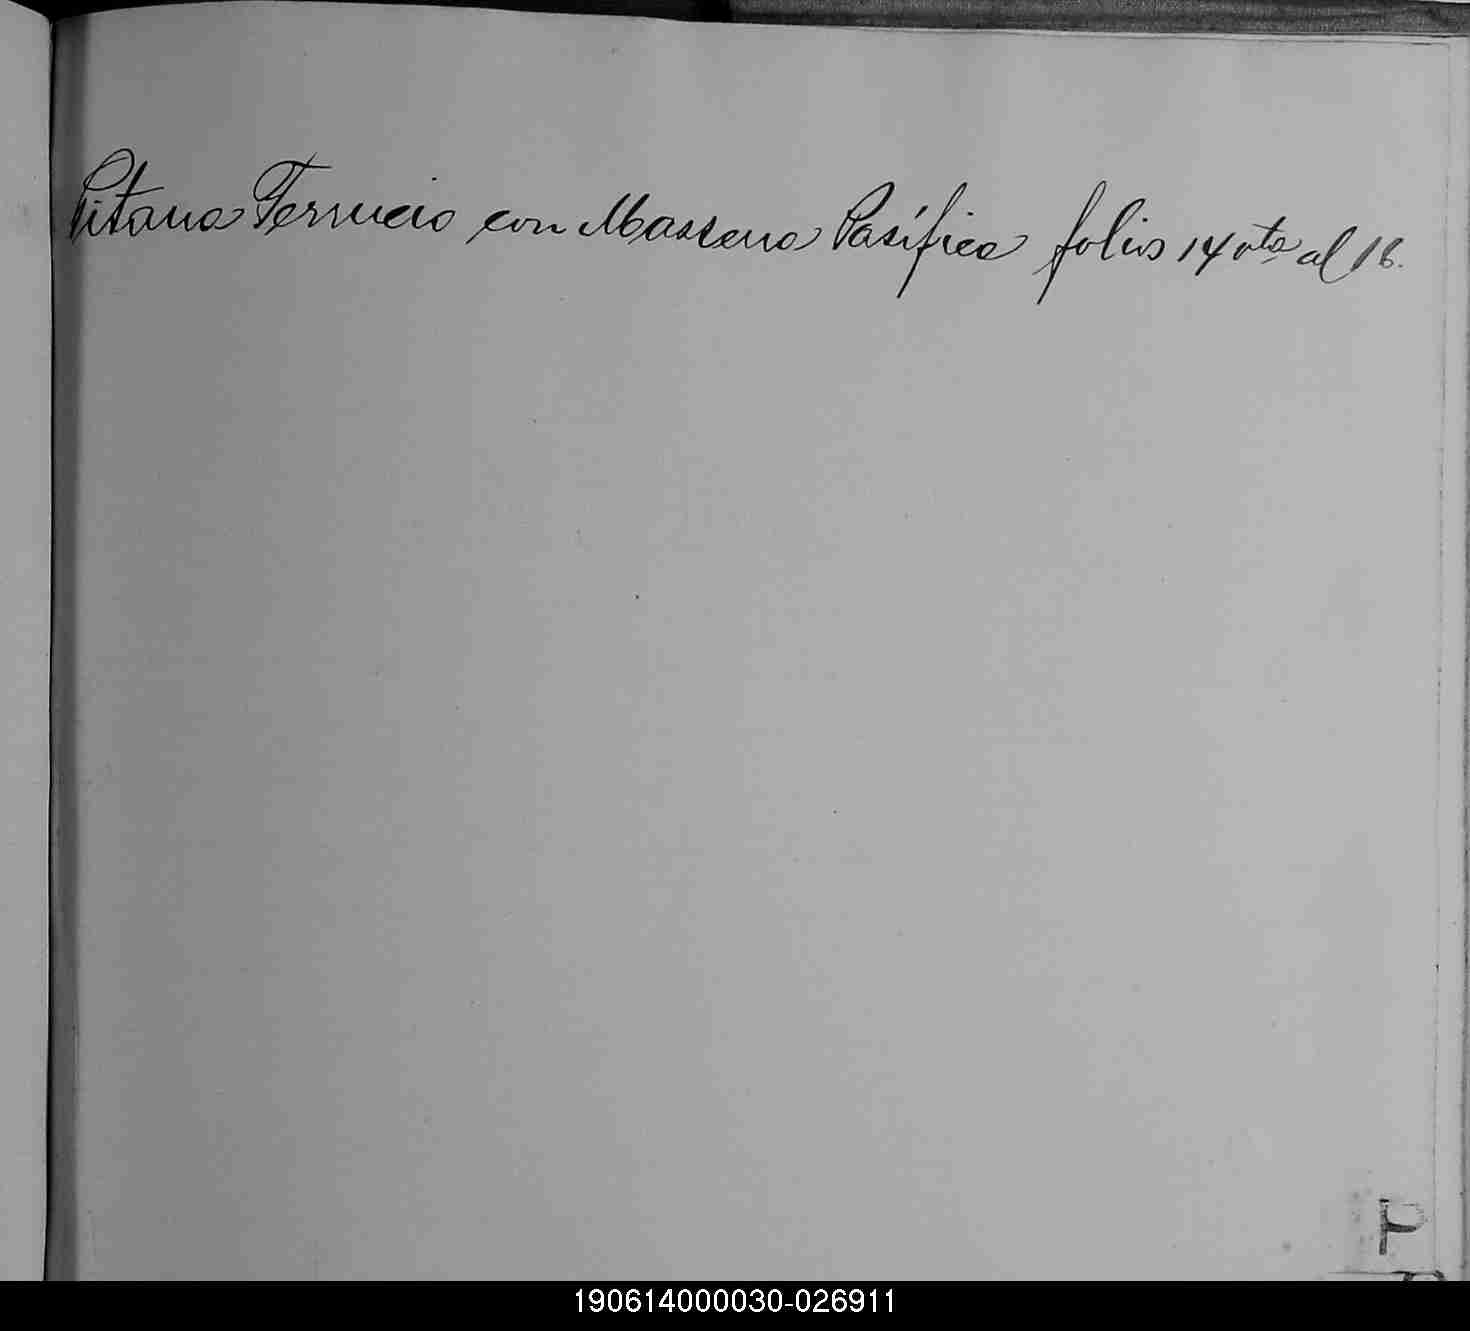 Pitana Ferrucio con Massena Pasífica folios 14 vta al 16.
P
190614000030-026911